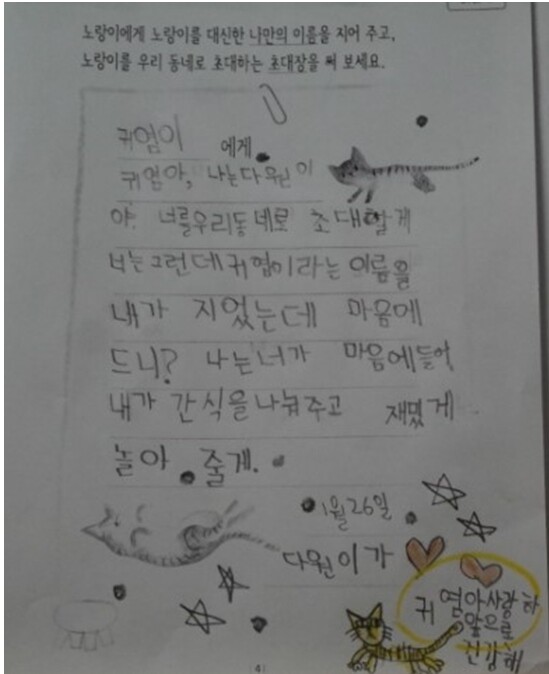 노랑이에게 노랑이를 대신한 나만의 이름을 지어 주고,
노랑이를 우리 동네로 초대하는 초대장을 써 보세요.
귀엽이 에게
귀엽아, 나는다원이
야. 너를우리동네로 초대할게
너는그런데귀엽이라는 이름을
내가 지었는데 마음에
드니? 나는너가 마음에들어
내가 간식을나눠주고 재밌게
놀아 줄게.
1월26일
다원이가
귀엽아사랑하
앞으로
건강해
4